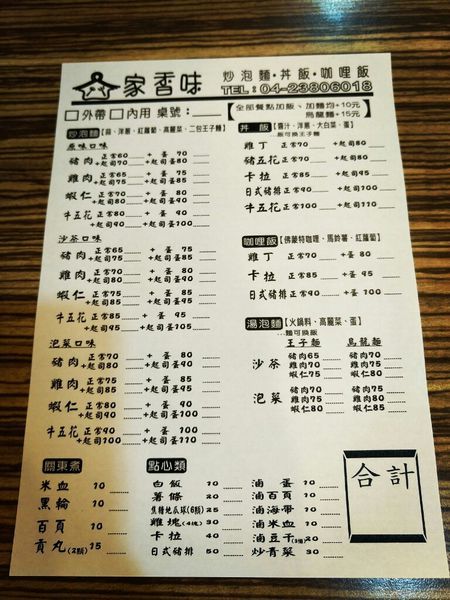 家香味 炒泡麵·丼飯·咖哩飯
TEL:04-23806018
□外帶□內用 桌號:
全部餐點加飯、加麵均+10元
烏龍麵+15元
炒泡麵【蒜、洋蔥、紅蘿蔔、高麗菜、二包王子麵】
原味口味
豬肉 正常60 + 蛋 70
+起司75 +起司蛋85
雞肉 正常65 + 蛋 75
+起司80 +起司蛋90
蝦仁 正常70 + 蛋 80
+起司90
牛五花 正常80 + 蛋 90
+起司90 +起司蛋100
沙茶口味
豬肉 正常65 + 蛋 75
+起司75
雞肉 正常70 + 蛋 80
+起司80 +起司蛋90
蝦仁 正常75 + 蛋 85
+起司蛋95
牛五花 正常85 + 蛋 95
+起司95 +起司蛋105
泡菜口味
豬肉 正常70 + 蛋 80
+起司蛋90
雞肉 正常75 + 蛋 85
+起司蛋95
蝦仁 正常80 + 蛋 90
+起司蛋100
牛五花 正常90 + 蛋 100
+起司100 +起司蛋110
丼 飯【醬汁、洋蔥、大白菜、蛋】
...飯可換王子麵
雞丁 正常70 +起司80
豬五花 正常70 +起司80
卡拉 正常85 +起司95
日式豬排 正常90 +起司100
牛五花 正常100 +起司110
咖哩飯【佛蒙特咖哩、馬鈴薯、紅蘿蔔】
雞丁 正常70 + 蛋 80
卡拉 正常85 + 蛋 95
日式豬排 正常90 + 蛋 100
湯泡麵【火鍋料、高麗菜、蛋】
...麵可換飯
王子麵 烏龍麵
沙茶 豬肉65 豬肉70
雞肉70 雞肉75
蝦仁75 蝦仁80
泡菜 豬肉70 豬肉75
雞肉75 雞肉80
蝦仁80 蝦仁85
關東煮
米血 10
黑輪 10
百頁 10
貢丸(2顆) 15
點心類
白飯 10
薯條 20
焦糖地瓜球(6顆) 25
雞塊(4塊) 30
卡拉 40
日式豬排 50
滷蛋 10
滷百頁 10
滷海帶 10
滷米血 10
滷豆干 10
炒青菜 30
合計